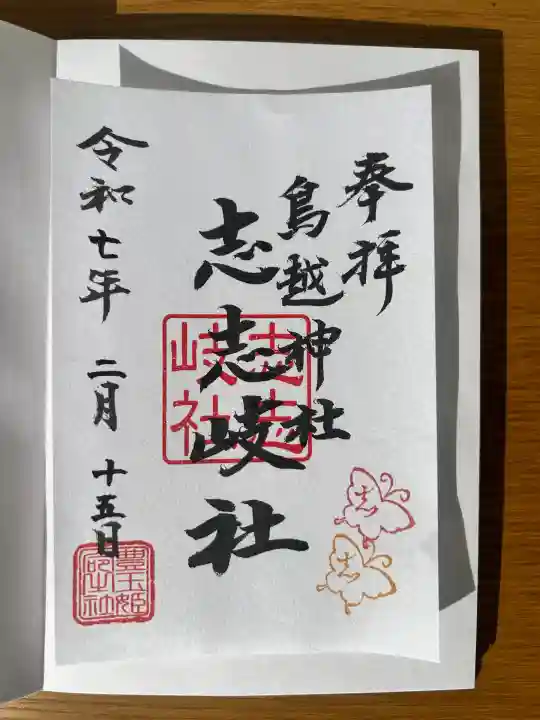 奉拝
鳥越神社
志志岐社
志志
岐社
令和七年 二月 十五日
豊玉姫
神社
志
志